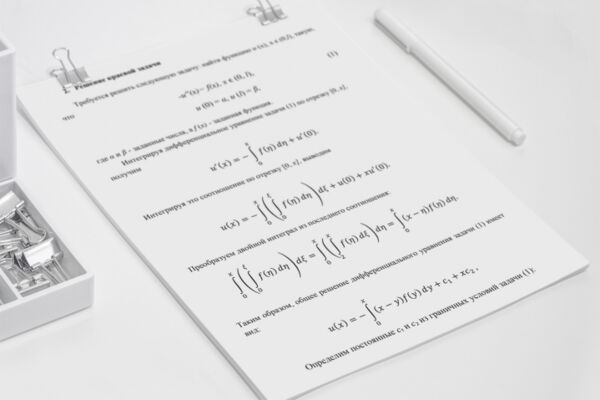 1. Решение краевой задачи
Требуется решить следующую задачу: найти функцию u (x), x ∈ (0, l), такую,
что
-u''(x) = f(x), x ∈ (0, l),
(1)
u (0) = α, u (l) = β,
где α и β - заданные числа, а f (x) - заданная функция.
Интегрируя дифференциальное уравнение задачи (1) по отрезку [0, x],
получим
u'(x) = −∫₀ˣ f(η) dη + u'(0).
Интегрируя это соотношение по отрезку [0, x], выводим
u(x) = −∫₀ˣ (∫₀^ξ f(η) dη) dξ + u(0) + xu'(0).
Преобразуем двойной интеграл из последнего соотношения:
∫₀ˣ (∫₀^ξ f(η) dη) dξ = ∫₀ˣ (∫ˣ f(η) dξ) dη = ∫₀ˣ (x − η) f(η) dη.
Таким образом, общее решение дифференциального уравнения задачи (1) имеет
вид:
u(x) = −∫₀ˣ (x − y) f(y) dy + c₁ + xc₂ ,
Определим постоянные c₁ и c₂ из граничных условий задачи (1):